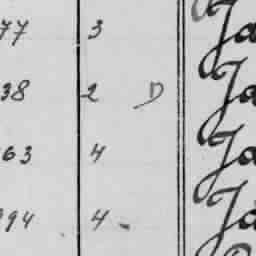 77 3 Ja
38 2 D Ja
63 4 Ja
94 4 Ja